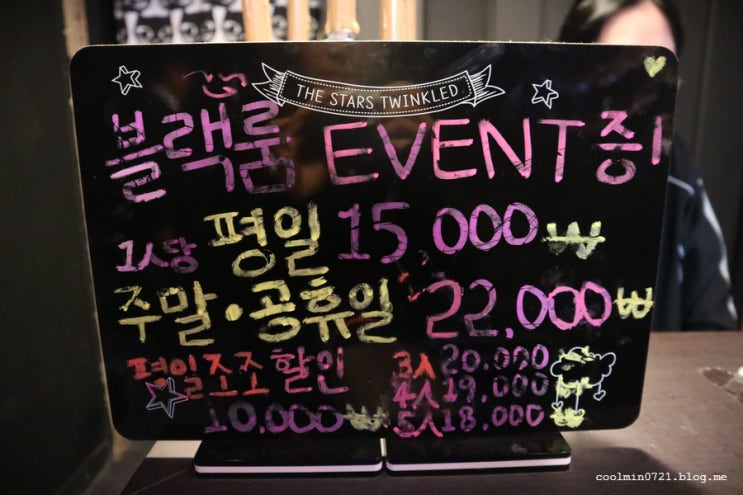 THE STARS TWINKLED
블랙룸 EVENT 중!
1人당 평일 15,000₩
주말·공휴일 22,000₩
평일조조 할인 3人 20,000
4人 19,000
10,000₩ 5人 18,000
coolmin0721.blog.me